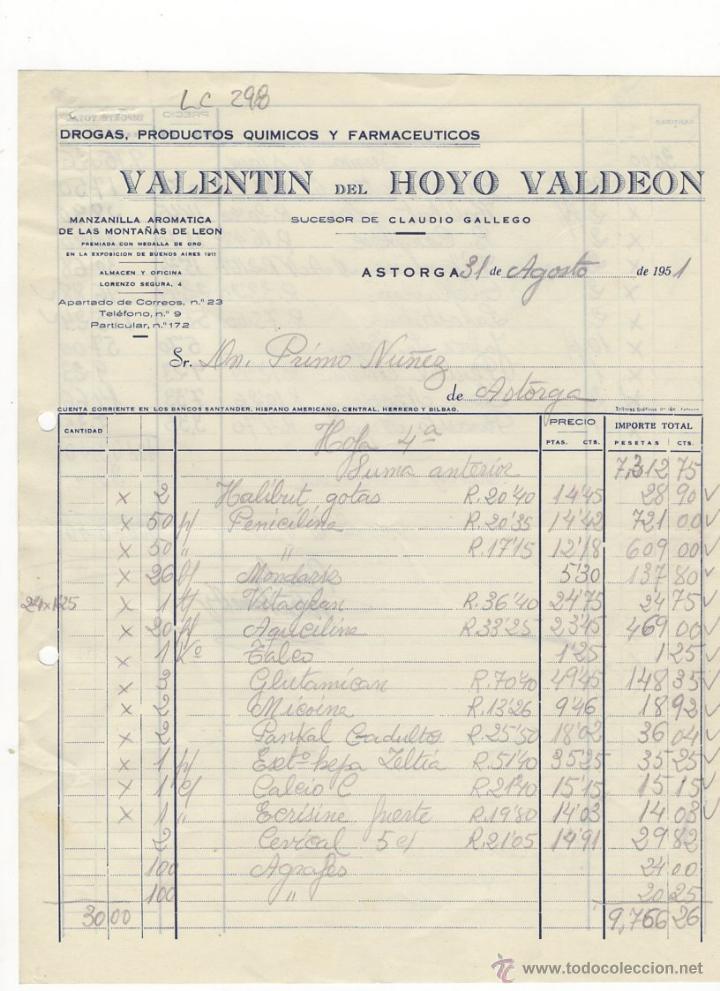 LC 298
DROGAS, PRODUCTOS QUIMICOS Y FARMACEUTICOS
VALENTIN DEL HOYO VALDEON
SUCESOR DE CLAUDIO GALLEGO
MANZANILLA AROMATICA
DE LAS MONTAÑAS DE LEON
PREMIADA CON MEDALLA DE ORO
EN LA EXPOSICION DE BUENOS AIRES 1911
ALMACEN Y OFICINA
LORENZO SEGURA, 4
Apartado de Correos, n.º 23
Teléfono, n.º 9
Particular, n.º 172
ASTORGA 31 de Agosto de 1951
Sr. Dn. Primo Nuñez
de Astorga
CUENTA CORRIENTE EN LOS BANCOS SANTANDER, HISPANO AMERICANO, CENTRAL, HERRERO Y BILBAO.
CANTIDAD PRECIO IMPORTE TOTAL
PTAS. CTS. PESETAS CTS.
Hoja 4ª
Suma anterior 7,312 75
x 2 Halibut gotas R.20'40 14'45 28 90 ✓
x 50 p/ Peniciline R.20'35 14'42 721 00 ✓
x 50 " " R.17'15 12'18 609 00 ✓
x 26 5'30 137 80 ✓
24x1'25 x 1 R.36'40 24'75 24 75 ✓
x 20 Aquciline R.33'25 23'45 469 00 ✓
x 1 Kº Talco 1'25 1 25 ✓
x 3 Glutamican R.70'40 49'45 148 35 ✓
x 2 Micoina R.13'26 9'46 18 92 ✓
x 2 Pankal R.25'50 18'02 36 04 ✓
x 1 p/ Extº hepa Zeltia R.51'40 35'25 35 25 ✓
x 1 c/ Calcio C R.21'40 15'15 15 15 ✓
x 1 " Ecrisine fuerte R.19'80 14'03 14 03 ✓
2 5 c/ R.21'05 14'91 29 82
100 Agrafes 24 00
100 " 20 25
30 00 9,766 26
www.todocoleccion.net